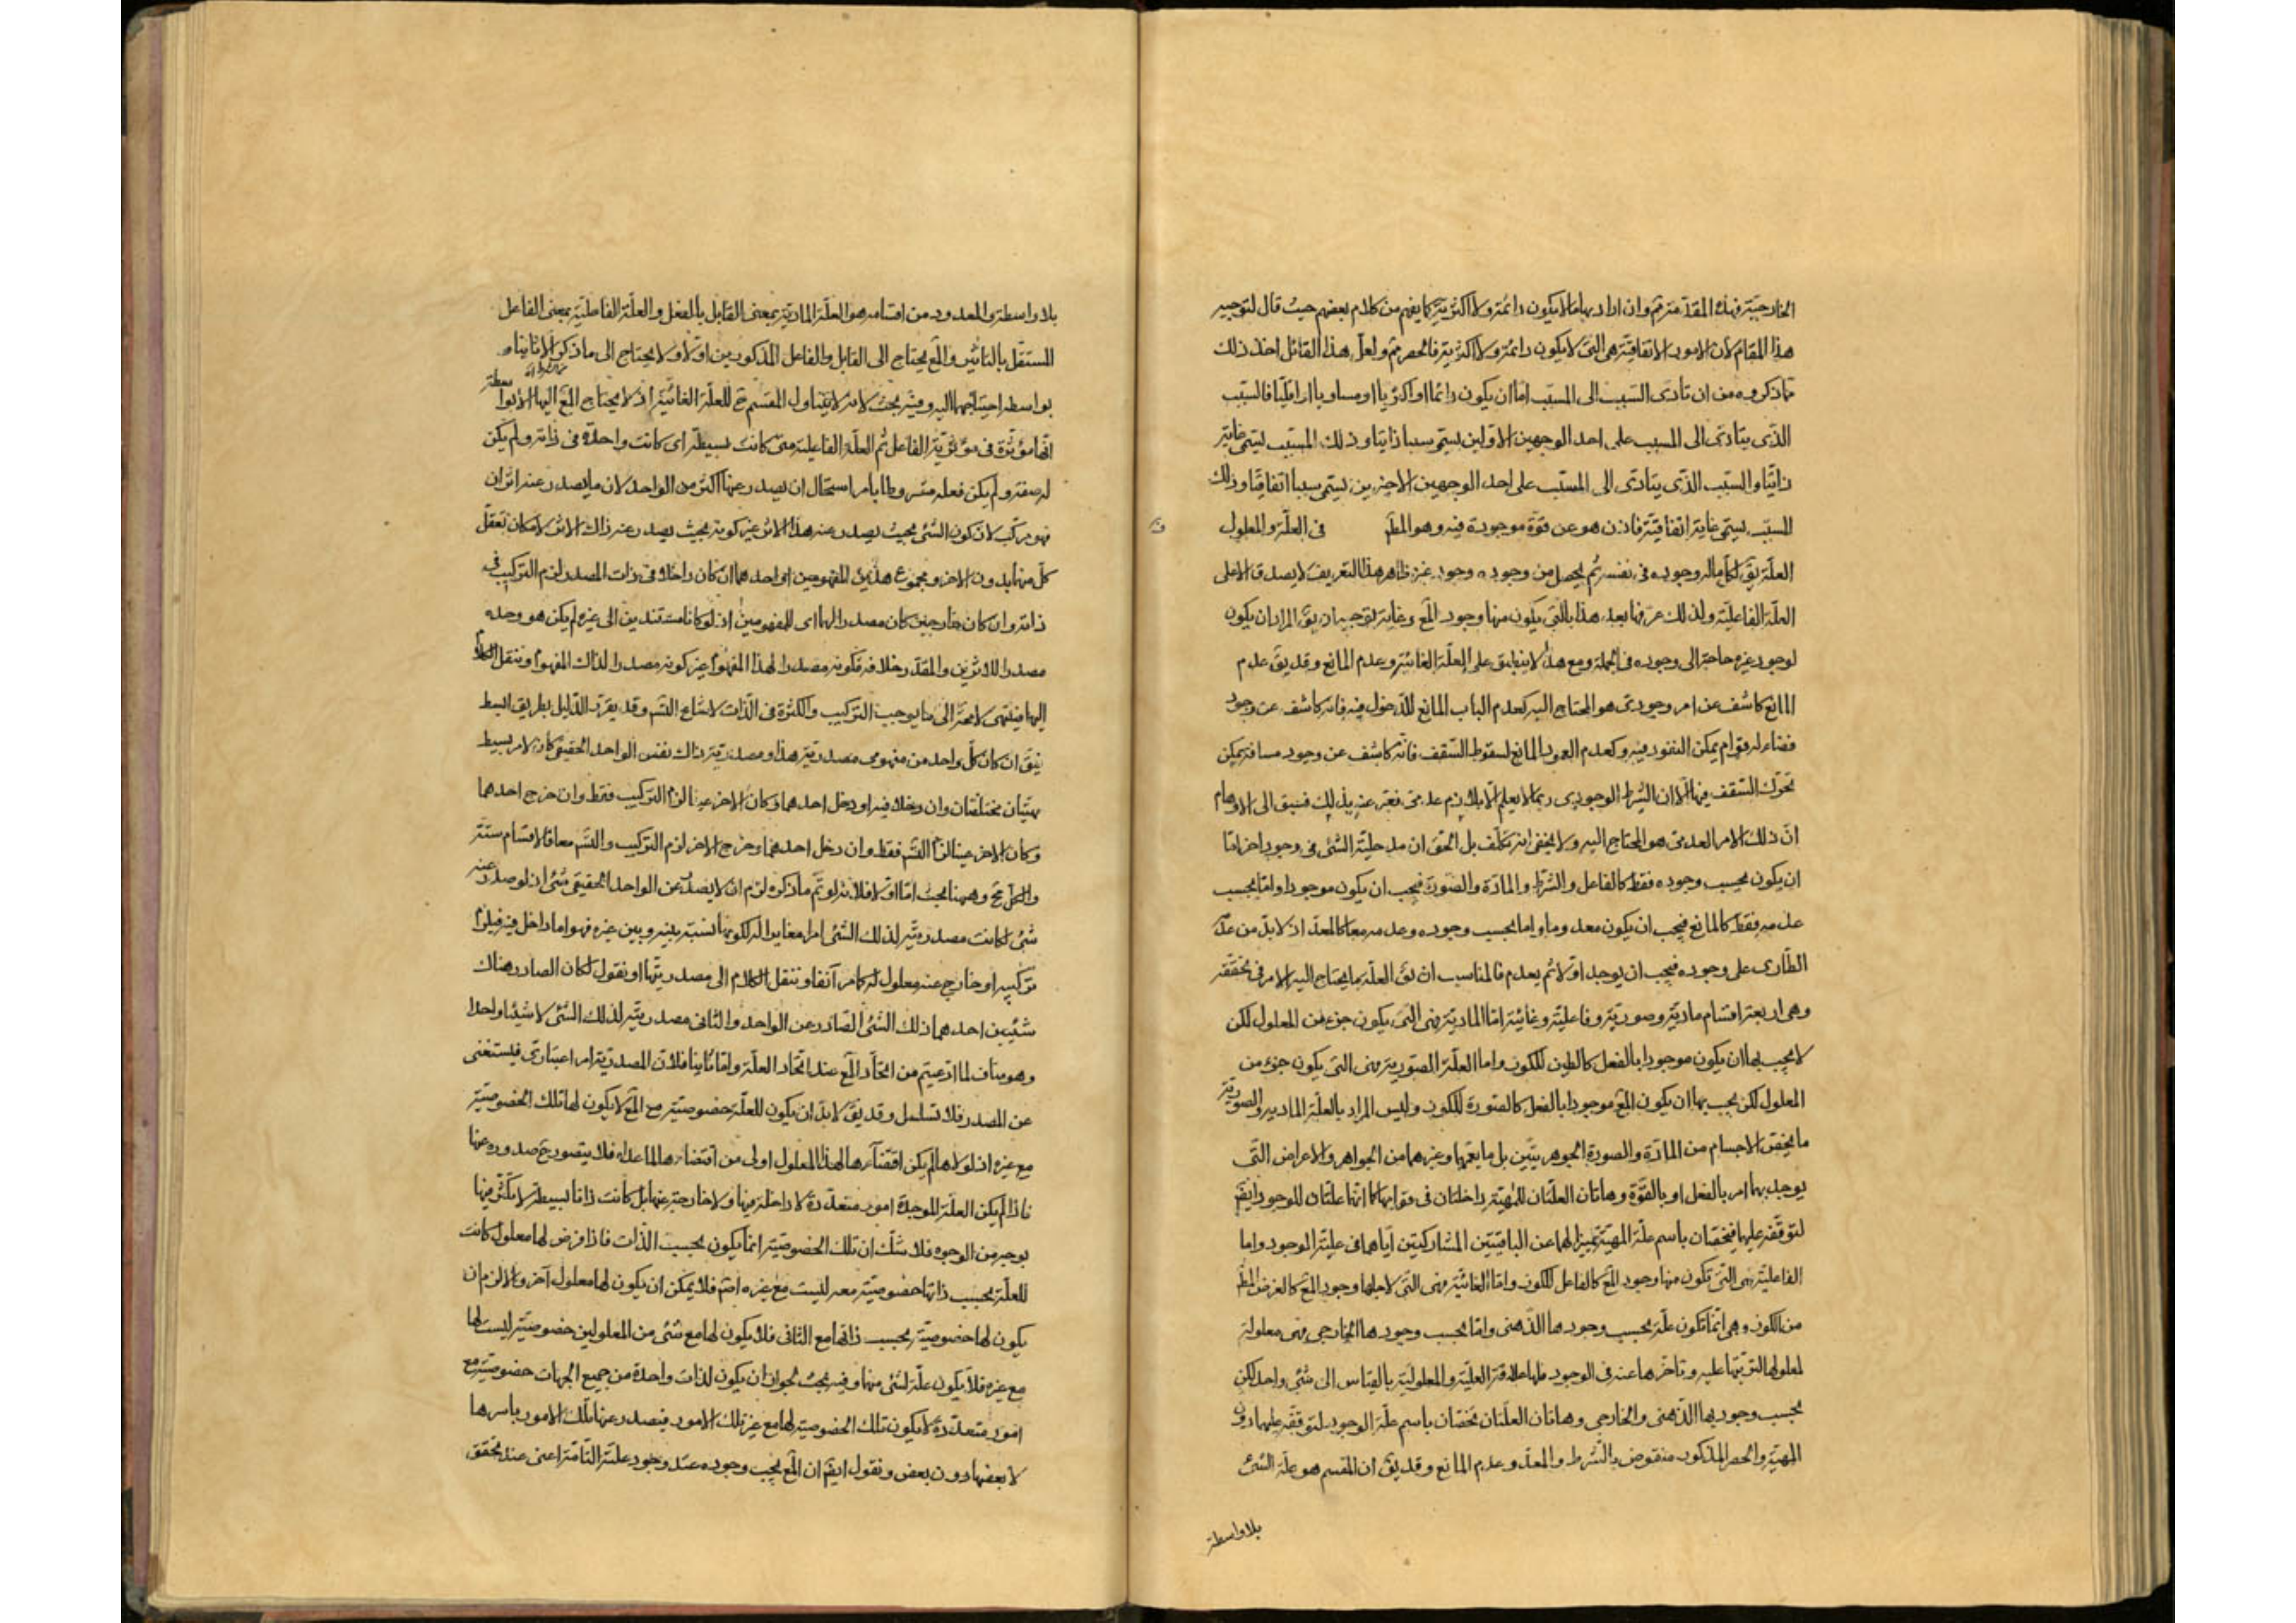 الخارجية فهذه المقدمة مم وان اراد بها ما لا يكون دائمة ولا اكثرية كما يفهم من كلام بعضهم حيث قال لتوجيه
هذا المقام لان الامور الاتفاقية هى التى لا يكون دائمة ولا اكثرية فالحصر مم ولعل هذا القائل اخذ ذلك
مما ذكروه من ان تادى السبب الى المسبب اما ان يكون دائما او اكثريا او مساويا او اقليا فالسبب
الذى يتادى الى المسبب على احد الوجهين الاولين يسمى سببا ذاتيا وذلك المسبب يسمى غاية
ذاتية والسبب الذى يتادى الى المسبب على احد الوجهين الاخيرين يسمى سببا اتفاقيا وذلك
المسبب يسمى غاية اتفاقية فاذن هو عن قوة موجودة فيه وهو المط فى العلة والمعلول
العلة يق لكل ما له وجود فى نفسه ثم يحصل من وجوده وجود غيره ظاهر هذا التعريف لا يصدق الا على
العلة الفاعلية ولذلك عرفها بعد هذا بالتى يكون منها وجود المع وغاية توجيهه ان يق المراد ان يكون
لوجود غيره حاجة الى وجوده فى الجملة ومع هذا لا ينطبق على العلة الغائية وعدم المانع وقد يق عدم
المانع كاشف عن امر وجودى هو المحتاج اليه كعدم الباب المانع للدخول فيه فانه كاشف عن وجود
فضاء له قوام يمكن النفوذ فيه وكعدم العمود المانع لسقوط السقف فانه كاشف عن وجود مسافة يمكن
تحرك السقف فيها الا ان الشرط الوجودى ربما لا يعلم الا بلازم عدمى فعبر عنه بذلك فسبق الى الاوهام
ان ذلك الامر العدمى هو المحتاج اليه ولا يخفى انه تكلف بل الحق ان مدخلية الشئ فى وجود اخر اما
ان يكون بحسب وجوده فقط كالفاعل والشرط والمادة والصورة فيجب ان يكون موجودا واما بحسب
عدمه فقط كالمانع فيجب ان يكون معدوما واما بحسب وجوده وعدمه معا كالمعد اذ لا بد من عدمه
الطارى على وجوده فيجب ان يوجد اولا ثم يعدم فالمناسب ان يق العلة ما يحتاج اليه الامر فى تحققه
وهى اربعة اقسام مادية وصورية وفاعلية وغائية اما المادية فهى التى يكون جزء من المعلول لكن
لا يجب بها ان يكون موجودا بالفعل كالطين للكوز واما العلة الصورية فهى التى يكون جزء من
المعلول لكن يجب بها ان يكون المع موجودا بالفعل كالصورة للكوز وليس المراد بالعلة المادية والصورية
ما يختص الاجسام من المادة والصورة الجوهريتين بل ما يعمها وغيرهما من الجواهر والاعراض التى
يوجد بها امر بالفعل او بالقوة وهاتان العلتان للمهية داخلتان فى قوامها كما انهما علتان للوجود ايضا
لتوقفه عليها فيختصان باسم علة المهية تمييزا لهما عن الباقيتين المشاركتين اياهما فى علية الوجود واما
الفاعلية فهى التى تكون منها وجود المع كالفاعل للكوز واما الغائية فهى التى لاجلها وجود المع كالغرض المط
من الكوز وهى انما تكون علة بحسب وجودها الذهنى واما بحسب وجودها الخارجى فهى معلولة
لمعلولها لترتبها عليه وتاخرها عنه فى الوجود فلها علاقة العلية والمعلولية بالقياس الى شئ واحد لكن
بحسب وجوديها الذهنى والخارجى وهاتان العلتان تخصان باسم علة الوجود لتوقفه عليهما دون
المهية والحصر المذكور منقوض بالشرط والمعد وعدم المانع وقد يق ان المقسم هو علة الشئ
بلا واسطة
بلا واسطة والمعدود من اقسامه هو العلة المادية بمعنى القابل بالفعل والعلة الفاعلية بمعنى الفاعل
المستقل بالتاثير والمع يحتاج الى القابل والفاعل المذكورين اولا ولا يحتاج الى ما ذكر الا ثانيا و
بواسطة احتياجهما اليه وفيه بحث لانه لا يتناول المقسم ح للعلة الغائية اذ لا يحتاج المع اليها الا بواسطة
انها مؤثرة فى مؤثرية الفاعل ثم العلة الفاعلية متى كانت بسيطة اى كانت واحدة فى ذاته ولم يكن
له صفة ولم يكن فعله مشروطا بامر استحال ان يصدر عنها اكثر من الواحد لان ما يصدر عنه اثران
فهو مركب لان كون الشئ بحيث يصدر عنه هذا الاثر غير كونه بحيث يصدر عنه ذاك الاثر لامكان تعقل
كل منها بدون الاخر ومجموع هذين المفهومين او احدهما ان كان داخلا فى ذات المصدر لزم التركيب فى
ذاته وان كان خارجين كان مصدرا لهما اى للمفهومين اذ لو كانا مستندين الى غيره لم يكن هو وحده
مصدرا للاثرين والمقدر خلافه فكونه مصدرا لهذا المفهوم غير كونه مصدرا لذاك المفهوم وننقل الكلام
اليها فينتهى لا محة الى ما يوجب التركيب والكثرة فى الذات لامتناع التسم وقد يقرر الدليل بطريق ابسط
فيق ان كان كل واحد من مفهومى مصدرية هذا ومصدرية ذاك نفس الواحد الحقيقى كان لامر بسيط
مهيتان مختلفتان وان دخلا فيه او دخل احدهما وكان الاخر عينا لزم التركيب فقط وان خرج احدهما
وكان الاخر عينا لزم التسم فقط وان دخل احدهما وخرج الاخر لزم التركيب والتسم معا فالاقسام ستة
والكل مح وههنا بحث اما اولا فلانه لو تم ما ذكره لزم ان لا يصدر عن الواحد الحقيقى شئ اذ لو صدر عنه
شئ لكانت مصدريته لذلك الشئ امرا مغايرا له لكونها نسبة بينه وبين غيره فهو اما داخل فيه فيلزم
تركيبه او خارج عنه معلول له كما مر آنفا وننقل الكلام الى مصدريتها او نقول لكان الصادر هناك
شيئين احدهما ذلك الشئ الصادر عن الواحد والثانى مصدريته لذلك الشئ لا شيئا واحدا
وهو مناف لما ادعيتم من اتحاد المع عند اتحاد العلة واما ثانيا فلان المصدرية امر اعتبارى فيستغنى
عن المصدر فلا تسلسل وقد يق لا بد ان يكون للعلة خصوصية مع المع لا يكون لها تلك الخصوصية
مع غيره اذ لولاها لم يكن اقتضاءها لهذا المعلول اولى من اقتضاءها لما عداه فلا يتصور ح صدوره عنها
فاذا لم يكن العلة الموجدة امور متعددة لا داخلة فيها ولا خارجة عنها بل كانت ذاتا بسيطة لا تكثر فيها
بوجه من الوجوه فلا شك ان تلك الخصوصية انما يكون بحسب الذات فاذا فرض لها معلول كانت
للعلة بحسب ذاتها خصوصية معه ليست مع غيره اصم فلا يمكن ان يكون لها معلول آخر والا لزم ان
يكون لها خصوصية بحسب ذاتها مع الثانى فلا يكون لها مع شئ من المعلولين خصوصية ليست لها
مع غيره فلا يكون علة لشئ منها وفيه بحث لجواز ان يكون لذات واحدة من جميع الجهات خصوصية مع
امور متعددة لا يكون تلك الخصوصية لها مع غير تلك الامور فيصدر عنها تلك الامور باسرها
لا بعضها دون بعض ونقول ايضا ان المع يجب وجوده عند وجود علته التامة اعنى عند تحقق